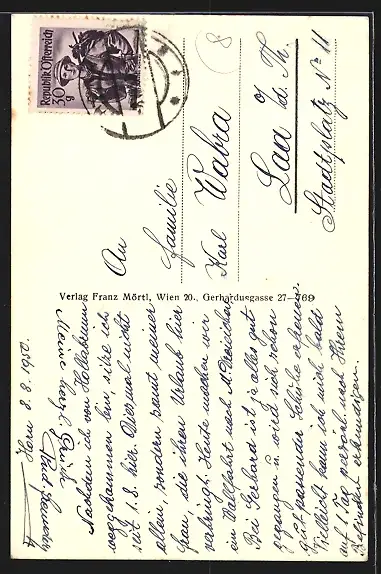 Republik Österreich
30 g
8
An
Familie
Karl Wabra
Laa a/d. Th.
Stadtplatz No 11
Verlag Franz Mörtl, Wien 20., Gerhardusgasse 27—769
Horn 8. 8. 1950
Meine Grüße
Nachdem ich von Hollabrunn
weggekommen bin, sitze ich
seit 1. 8. hier. Diesmal nicht
allein, sondern samt meiner
Frau, die ihren Urlaub hier
verbringt. Heute machen wir
ein Wallfahrt nach M. Dreieichen
Bei Gerhard ist ja alles gut
gegangen u. wird sich schon
gut passender Schule erfreuen.
Vielleicht kann ich mich bald
auf 1 Tag persönl. nach Ihrem
Befinden erkundigen.